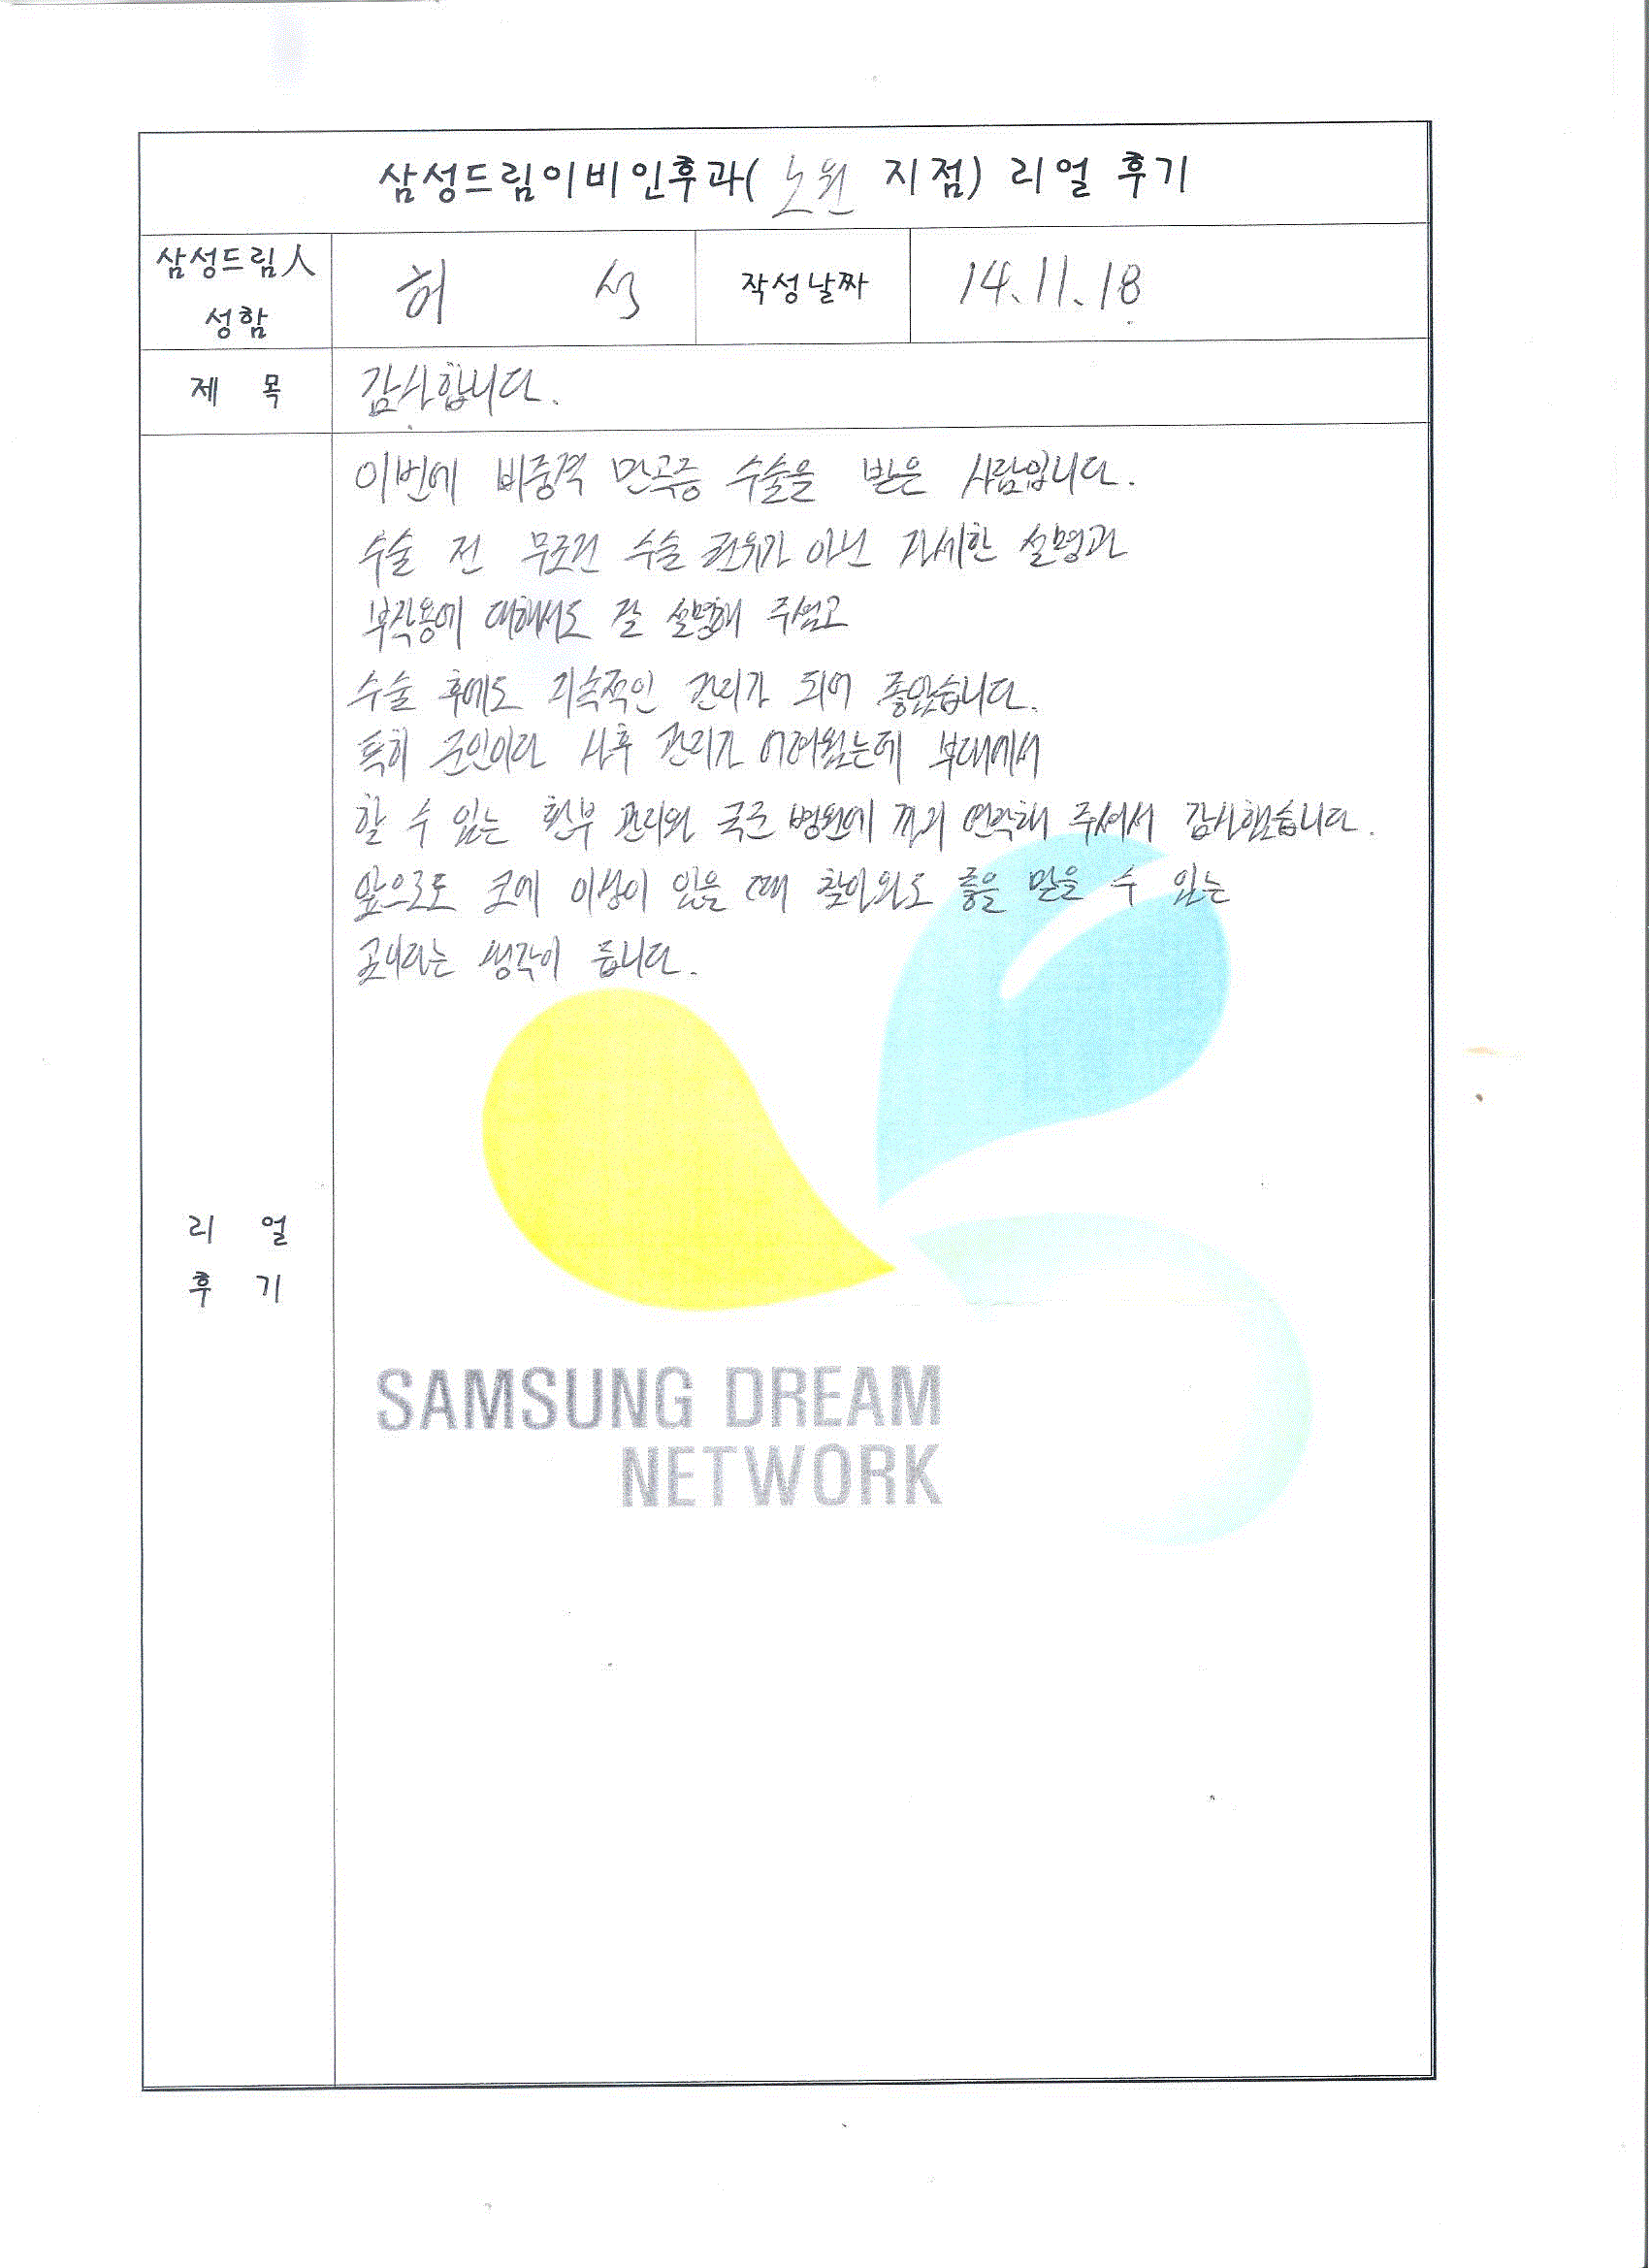 삼성드림이비인후과( 노원 지점) 리얼 후기
삼성드림人 성함
허 석
작성날짜
14.11.18
제 목
감사합니다.
이번에 비중격 만곡증 수술을 받은 사람입니다.
수술 전 무조건 수술 권유가 아닌 자세한 설명과
부작용에 대해서도 잘 설명해 주셨고
수술 후에도 지속적인 관리가 되어 좋았습니다.
특히 군인이라 사후 관리가 어려웠는데 부대에서
할 수 있는 환부 관리와 국군 병원에 까지 연락해 주셔서 감사했습니다.
앞으로도 코에 이상이 있을 때 찾아와도 좋을 만을 수 있는
곳이라는 생각이 듭니다.
리 얼
후 기
SAMSUNG DREAM
NETWORK